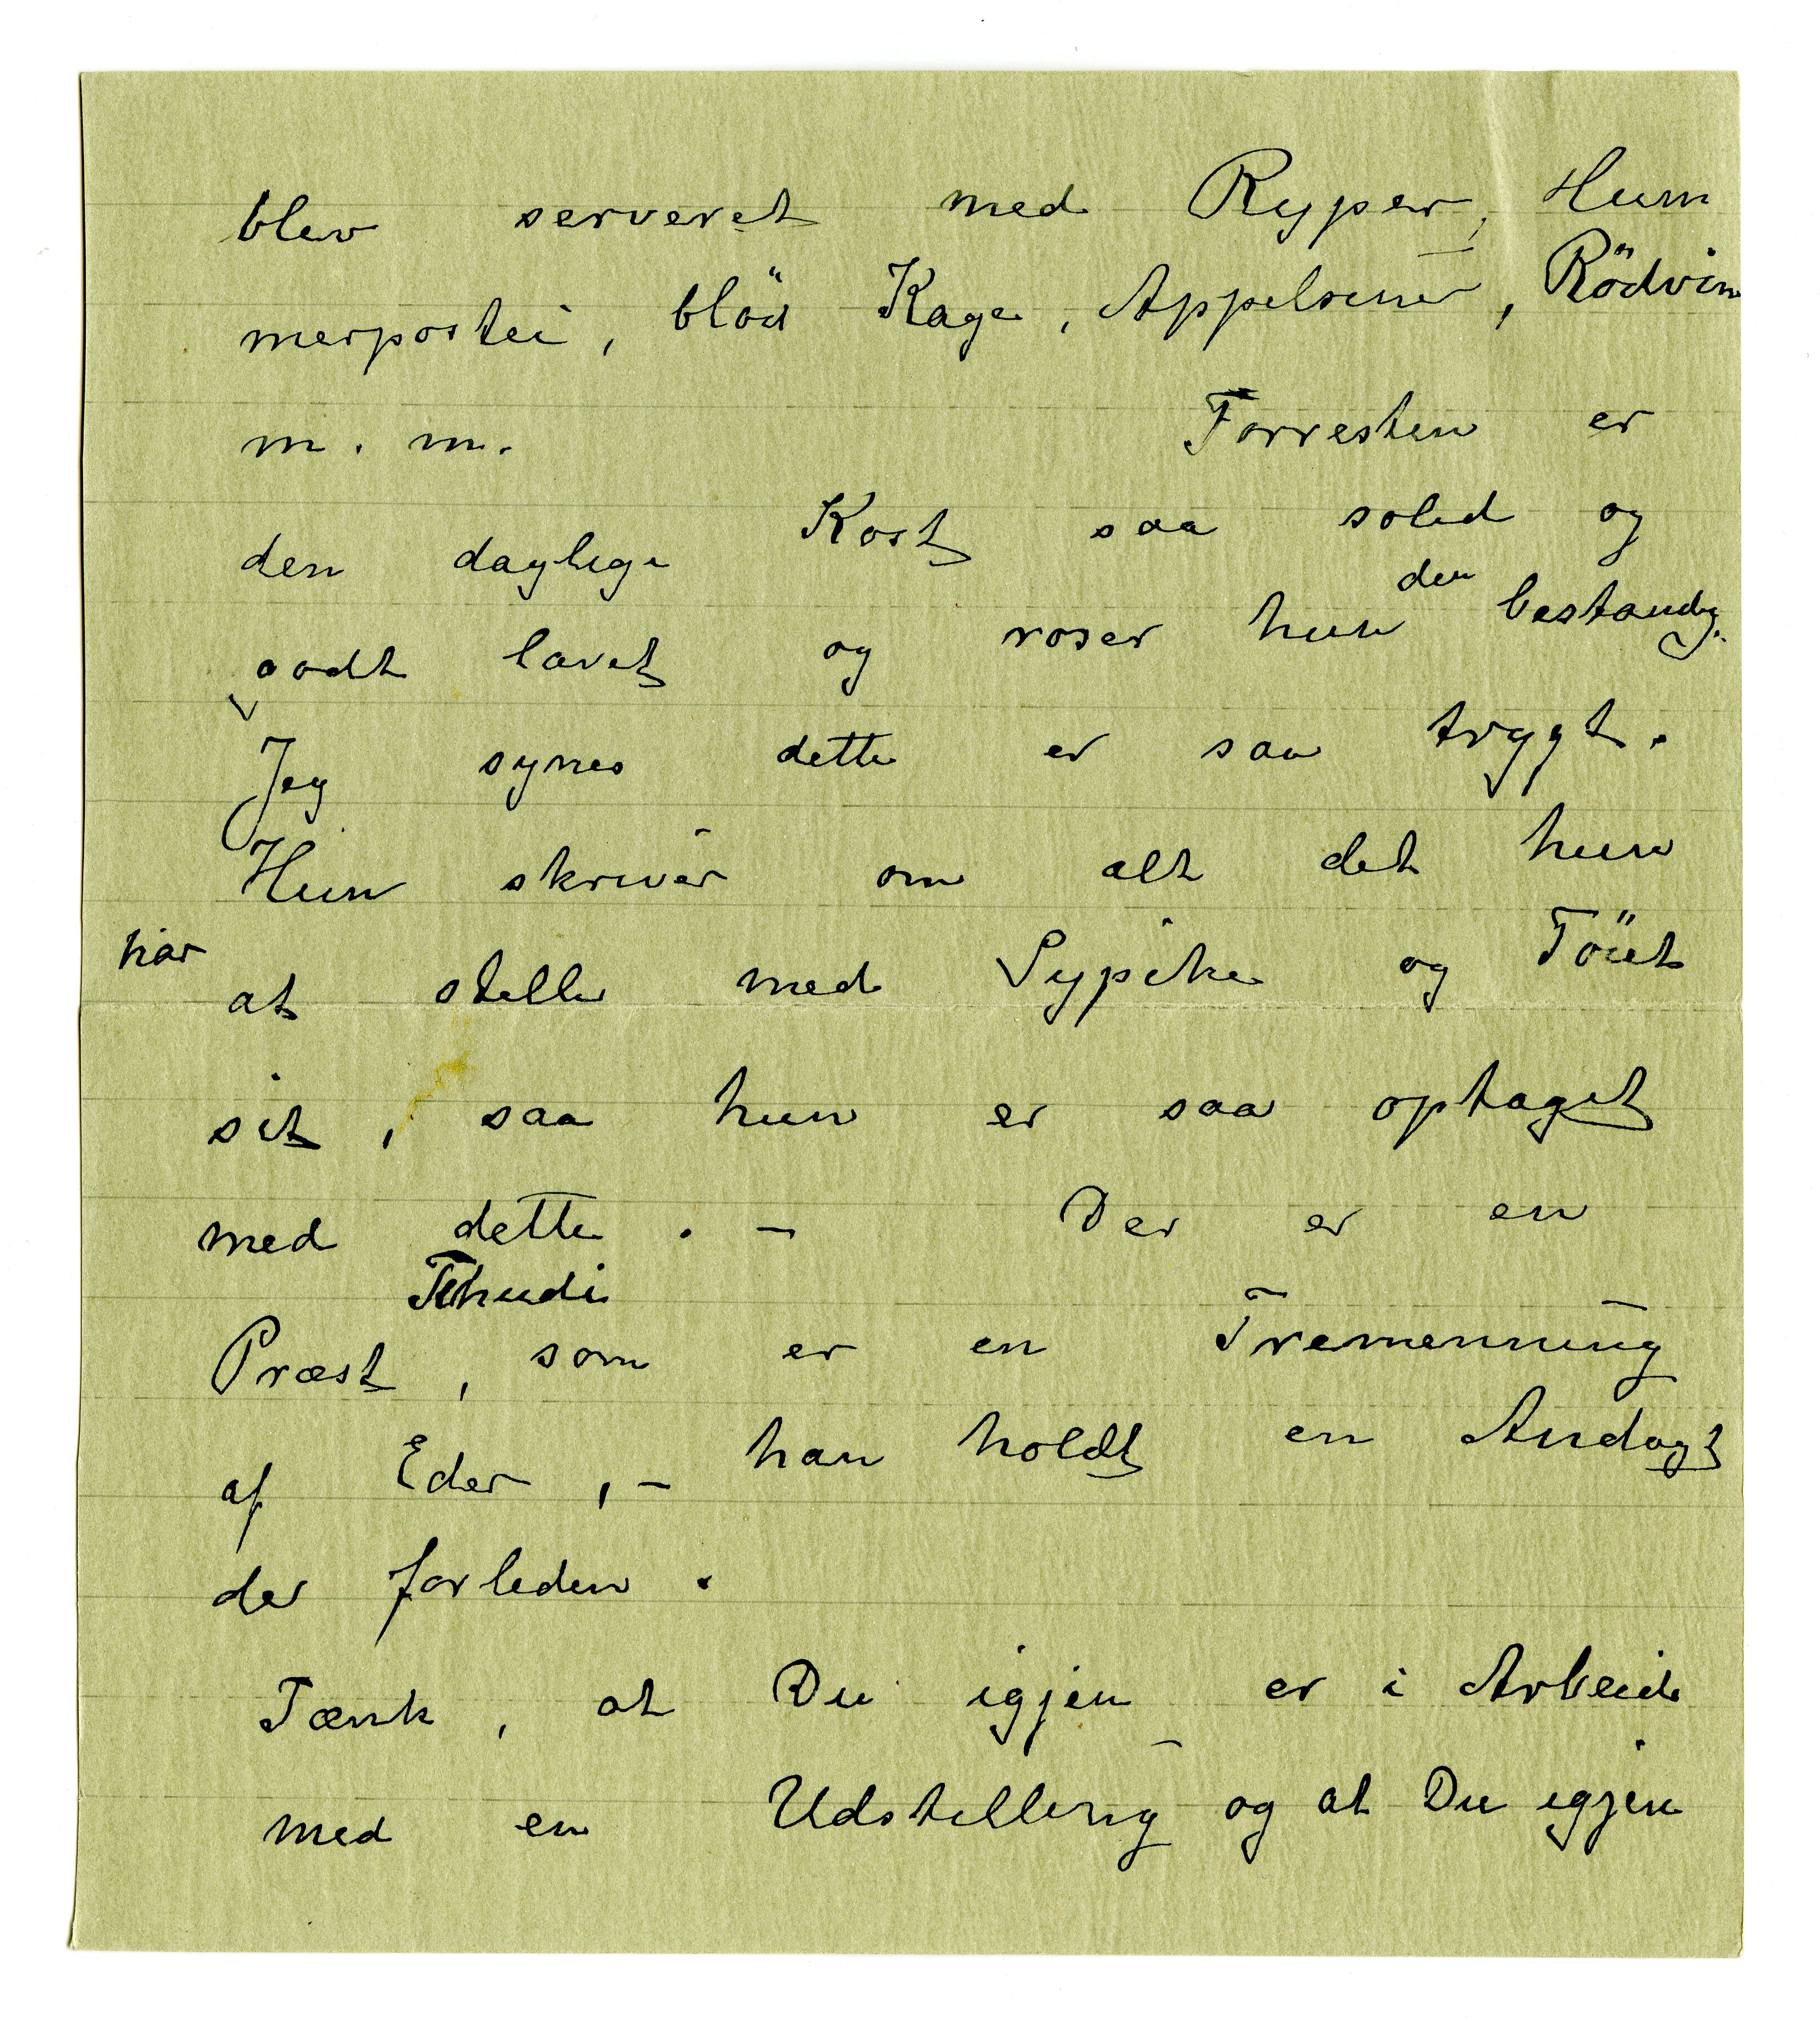 blev serveret med Ryper, Hum
merpostei, blöd Kage, Appelsiner, Rödvin
m. m. Forresten er
den daglige Kost saa solid og
godt lavet og roser hun den bestandig.
Jeg synes dette er saa trygt.
Hun skriver om alt det hun
har at stelle med Sypike og Töiet
sit, saa hun er saa optaget
med dette. – Der er en
Tschudi
Præst, som er en Tremenning
af Eder, – han holdt en Andagt
der forleden.
Tænk, at Du igjen er i Arbeide
med en Udstilling og at Du igjen